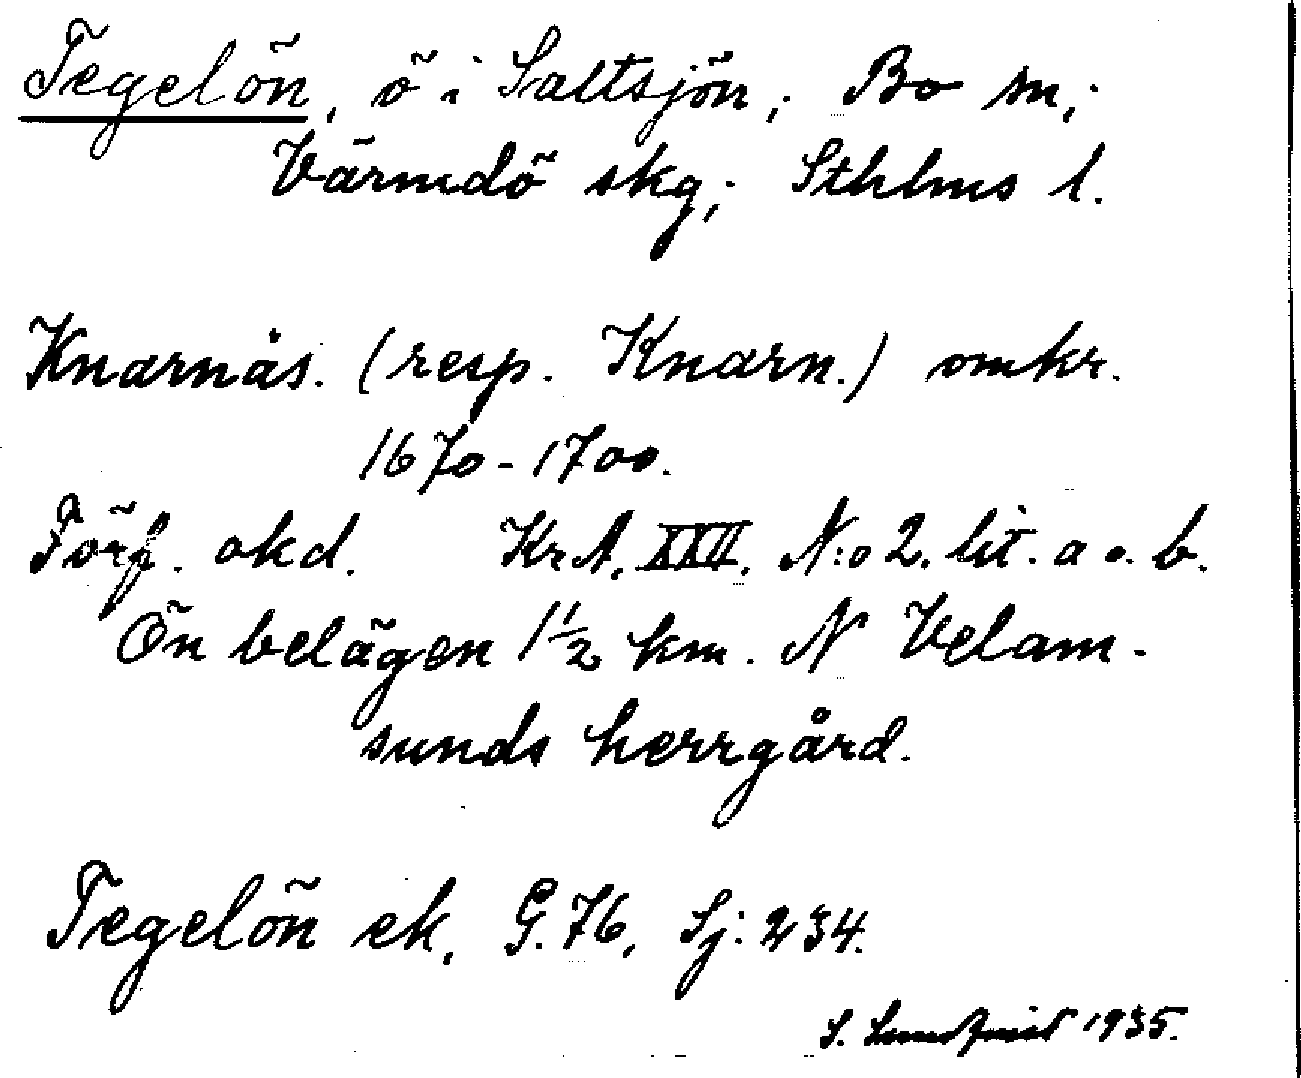 Tegelön, ö i Saltsjön; Bo sn;
Värmdö skg; Sthlms l.
Knarnäs. (resp. Knarn.) omkr.
1670-1700.
Förf. okd. KrA. XXII. N:o 2. lit. a o. b.
Ön belägen 1½ km. N Velam-
sunds herrgård.
Tegelön ek. G. 76, Sj: 234.
S. Lundqvist 1935.